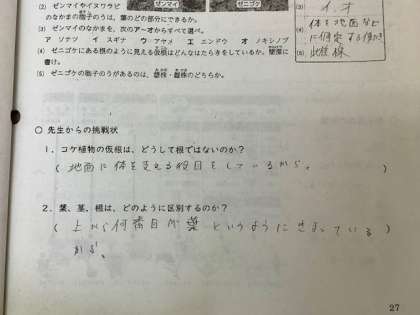 ゼンマイ
ゼニゴケ
(2) ゼンマイやイヌワラビ
のなかまの胞子のうは、葉のどの部分にできるか。
(3) ゼンマイのなかまを、次のア~オからすべて選べ。
ア ソテツ イ スギナ ウ アヤメ エ エンドウ オ ノキシノブ
(4) ゼニゴケにある根のように見える仮根はどんなはたらきをしているか。簡潔に
書け。
(5) ゼニゴケの胞子のうがあるのは、雄株・雌株のどちらか。
(3)
イ、オ
(4)
体を地面など
に固定する働き
(5)
雌株
○ 先生からの挑戦状
1．コケ植物の仮根は、どうして根ではないのか？
( 地面に体を支える役目をしているから。 )
2．葉、茎、根は、どのように区別するのか？
( 上から何番目が葉というようにきまっている )
から。
27